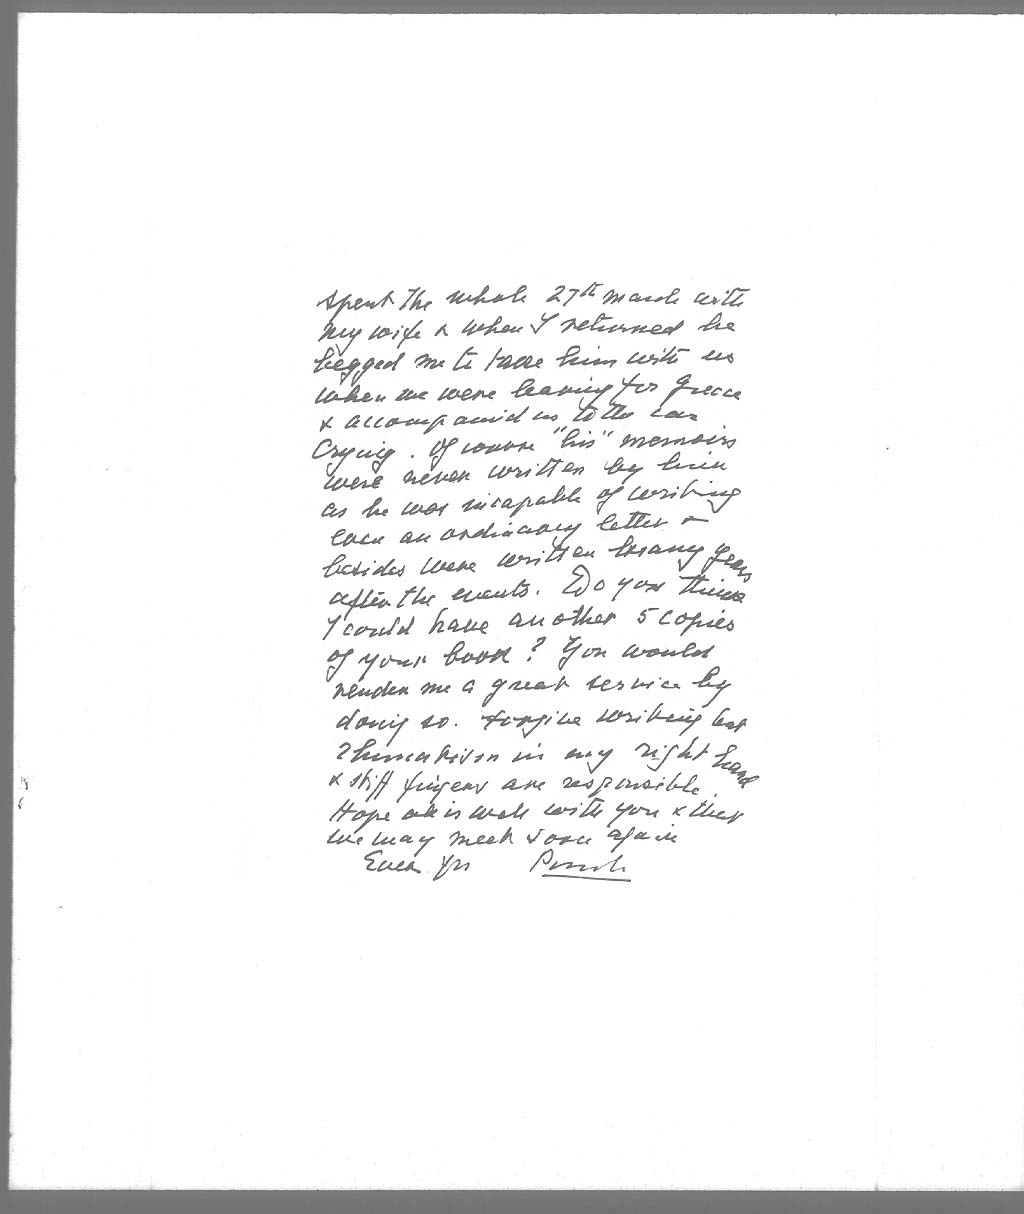 spent the whole 27th march with
my wife & when I returned he
begged me to take him with us
when we were leaving for Greece
& accompanied us to the car
crying. Of course "his" memoirs
were never written by him
as he was incapable of writing
even an ordinary letter &
besides were written many years
after the events. Do you think
I could have another 5 copies
of your book? You would
render me a great service by
doing so. Forgive writing but
rhumatism in my right hand
& stiff fingers are responsible.
Hope all is well with you & that
we may meet soon again
Ever Yrs